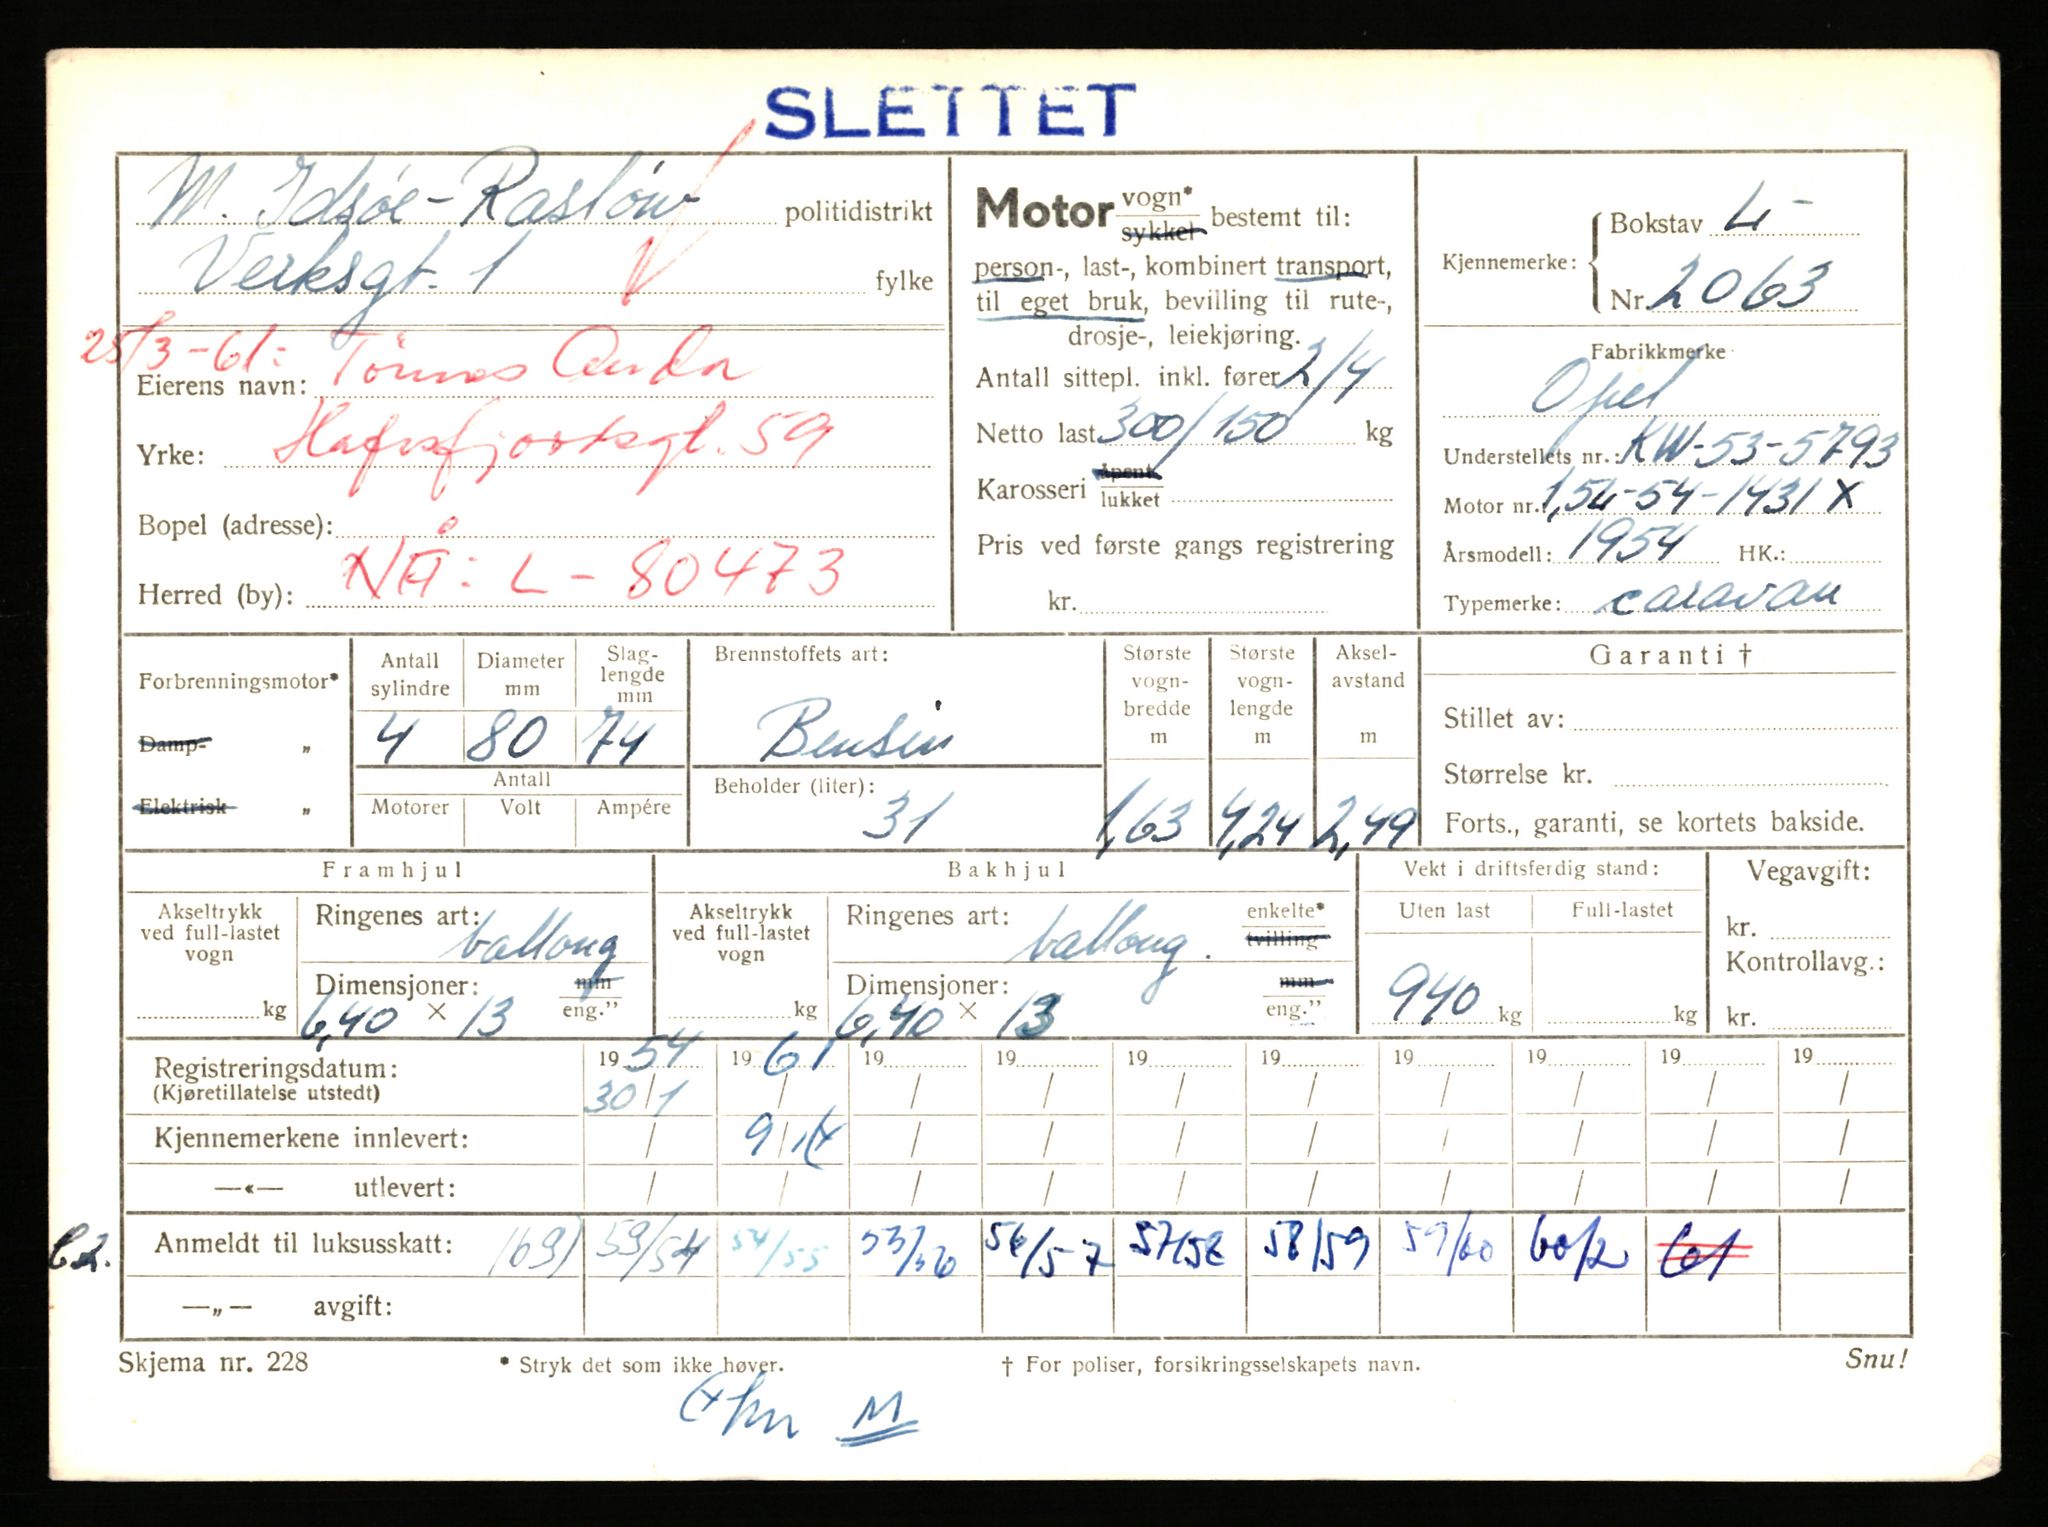 SLETTET
M. Idsøe-Raslöw politidistrikt
Verksgt. 1 fylke
25/3-61: Tönnes Anda
Eierens navn:
Hafrsfjordsgt. 59
Yrke:
Bopel (adresse):
NÅ: L-80473
Herred (by):
Motor vogn* sykkel bestemt til:
person-, last-, kombinert transport,
til eget bruk, bevilling til rute-,
drosje-, leiekjøring.
Antall sittepl. inkl. fører 2/4
Netto last 300/150 kg
Karosseri åpent lukket
Pris ved første gangs registrering
kr.
Kjennemerke: Bokstav L-
Nr. 2063
Fabrikkmerke
Opel
Understellets nr.: KW-53-5793
Motor nr. 1,54-54-1431 X
Årsmodell: 1954 HK.:
Typemerke: caravan
Forbrenningsmotor*
Damp- „
Elektrisk „
Antall sylindre Diameter mm Slag-lengde mm
4 80 74
Antall
Motorer Volt Ampére
Brennstoffets art:
Bensin
Beholder (liter):
31
Største vogn-bredde m
1,63
Største vogn-lengde m
4,24
Aksel-avstand m
2,49
Garanti †
Stillet av:
Størrelse kr.
Forts., garanti, se kortets bakside.
Framhjul
Akseltrykk ved full-lastet vogn
kg
Ringenes art: ballong
Dimensjoner: mm
6,40 × 13 eng.”
Bakhjul
Akseltrykk ved full-lastet vogn
kg
Ringenes art: ballong. enkelte* tvilling
Dimensjoner: mm
6,40 × 13 eng.”
Vekt i driftsferdig stand:
Uten last Full-lastet
940 kg kg
Vegavgift:
kr.
Kontrollavg.:
kr.
Registreringsdatum: 1954 1961 19 19 19 19 19 19 19 19
(Kjøretillatelse utstedt) 30/1 / / / / / / / / /
Kjennemerkene innlevert: / 9/ / / / / / / / /
—«— utlevert: / / / / / / / / / /
Anmeldt til luksusskatt: 169) 53/54 54/55 53/56 56/57 57/58 58/59 59/60 60/2 61
—„— avgift:
Skjema nr. 228 * Stryk det som ikke høver. † For poliser, forsikringsselskapets navn. Snu!
M